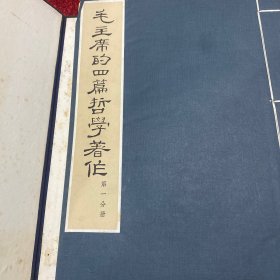 毛主席的四篇哲学著作
第一分册